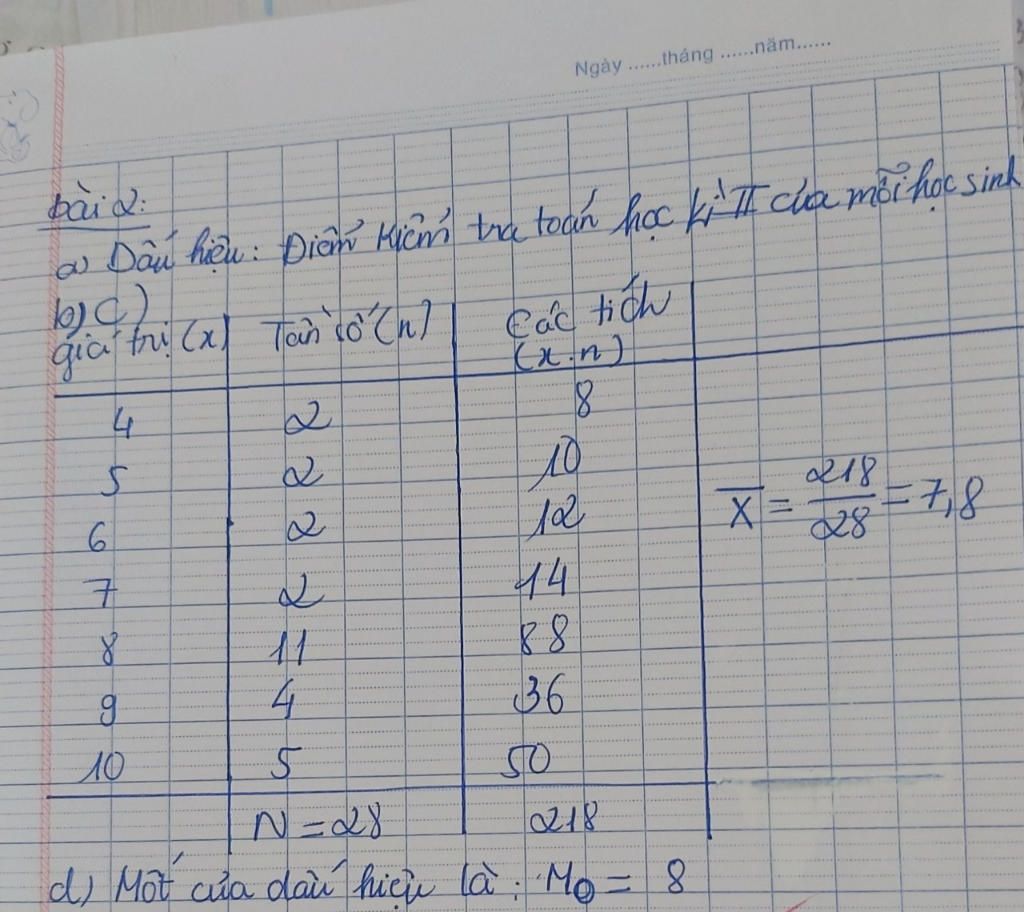 Ngày ......tháng ......năm......
bài 2:
a) Dấu hiệu: Điểm kiểm tra toán học kì II của mỗi học sinh
b) c)
giá trị (x) Tần số (n) Các tích (x.n)
4 2 8
5 2 10
6 2 12
7 2 14
8 11 88
9 4 36
10 5 50
N = 28 218
X̄ = 218/28 = 7,8
d) Mốt của dấu hiệu là: M₀ = 8